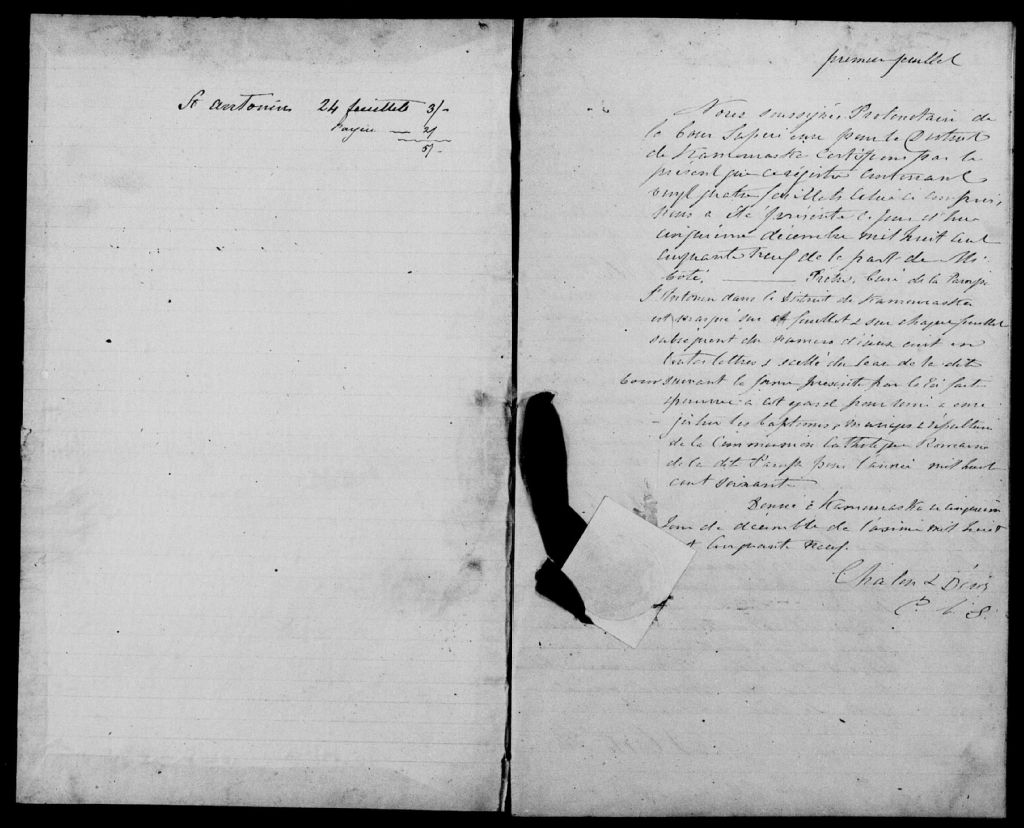 St Antonin 24 feuillets 3/-
Papier — 2/
5/-
premier feuillet
Nous soussignés Protonotaire de
la Cour Superieure pour le District
de Kamouraska Certifions par le
présent que ce régistre contenant
vingt quatre feuillets celui ci compris,
nous a été présenté ce jour d'hui
cinquième décembre mil huit cent
cinquante neuf de la part de Mr
Coté, ——— Prêtre, Curé de la Paroisse
St Antonin dans le District de Kamouraska
est marqué sur feuillet & sur chaque feuillet
subséquent du numero d'iceux écrit en
toutes lettres & scellé du sceau de la dite
Cour suivant la forme prescrite par la loi fait
pourvue à cet égard pour servir à enre
gistrer les baptêmes, mariages & sépultures
de la Communion Catholique Romaine
de la dite Paroisse pour l'année mil huit
cent soixante
Donné à Kamouraska ce cinquième
Jour de décembre de l'année mil huit
cinquante neuf.
Chalou & Déris
P. C. S.